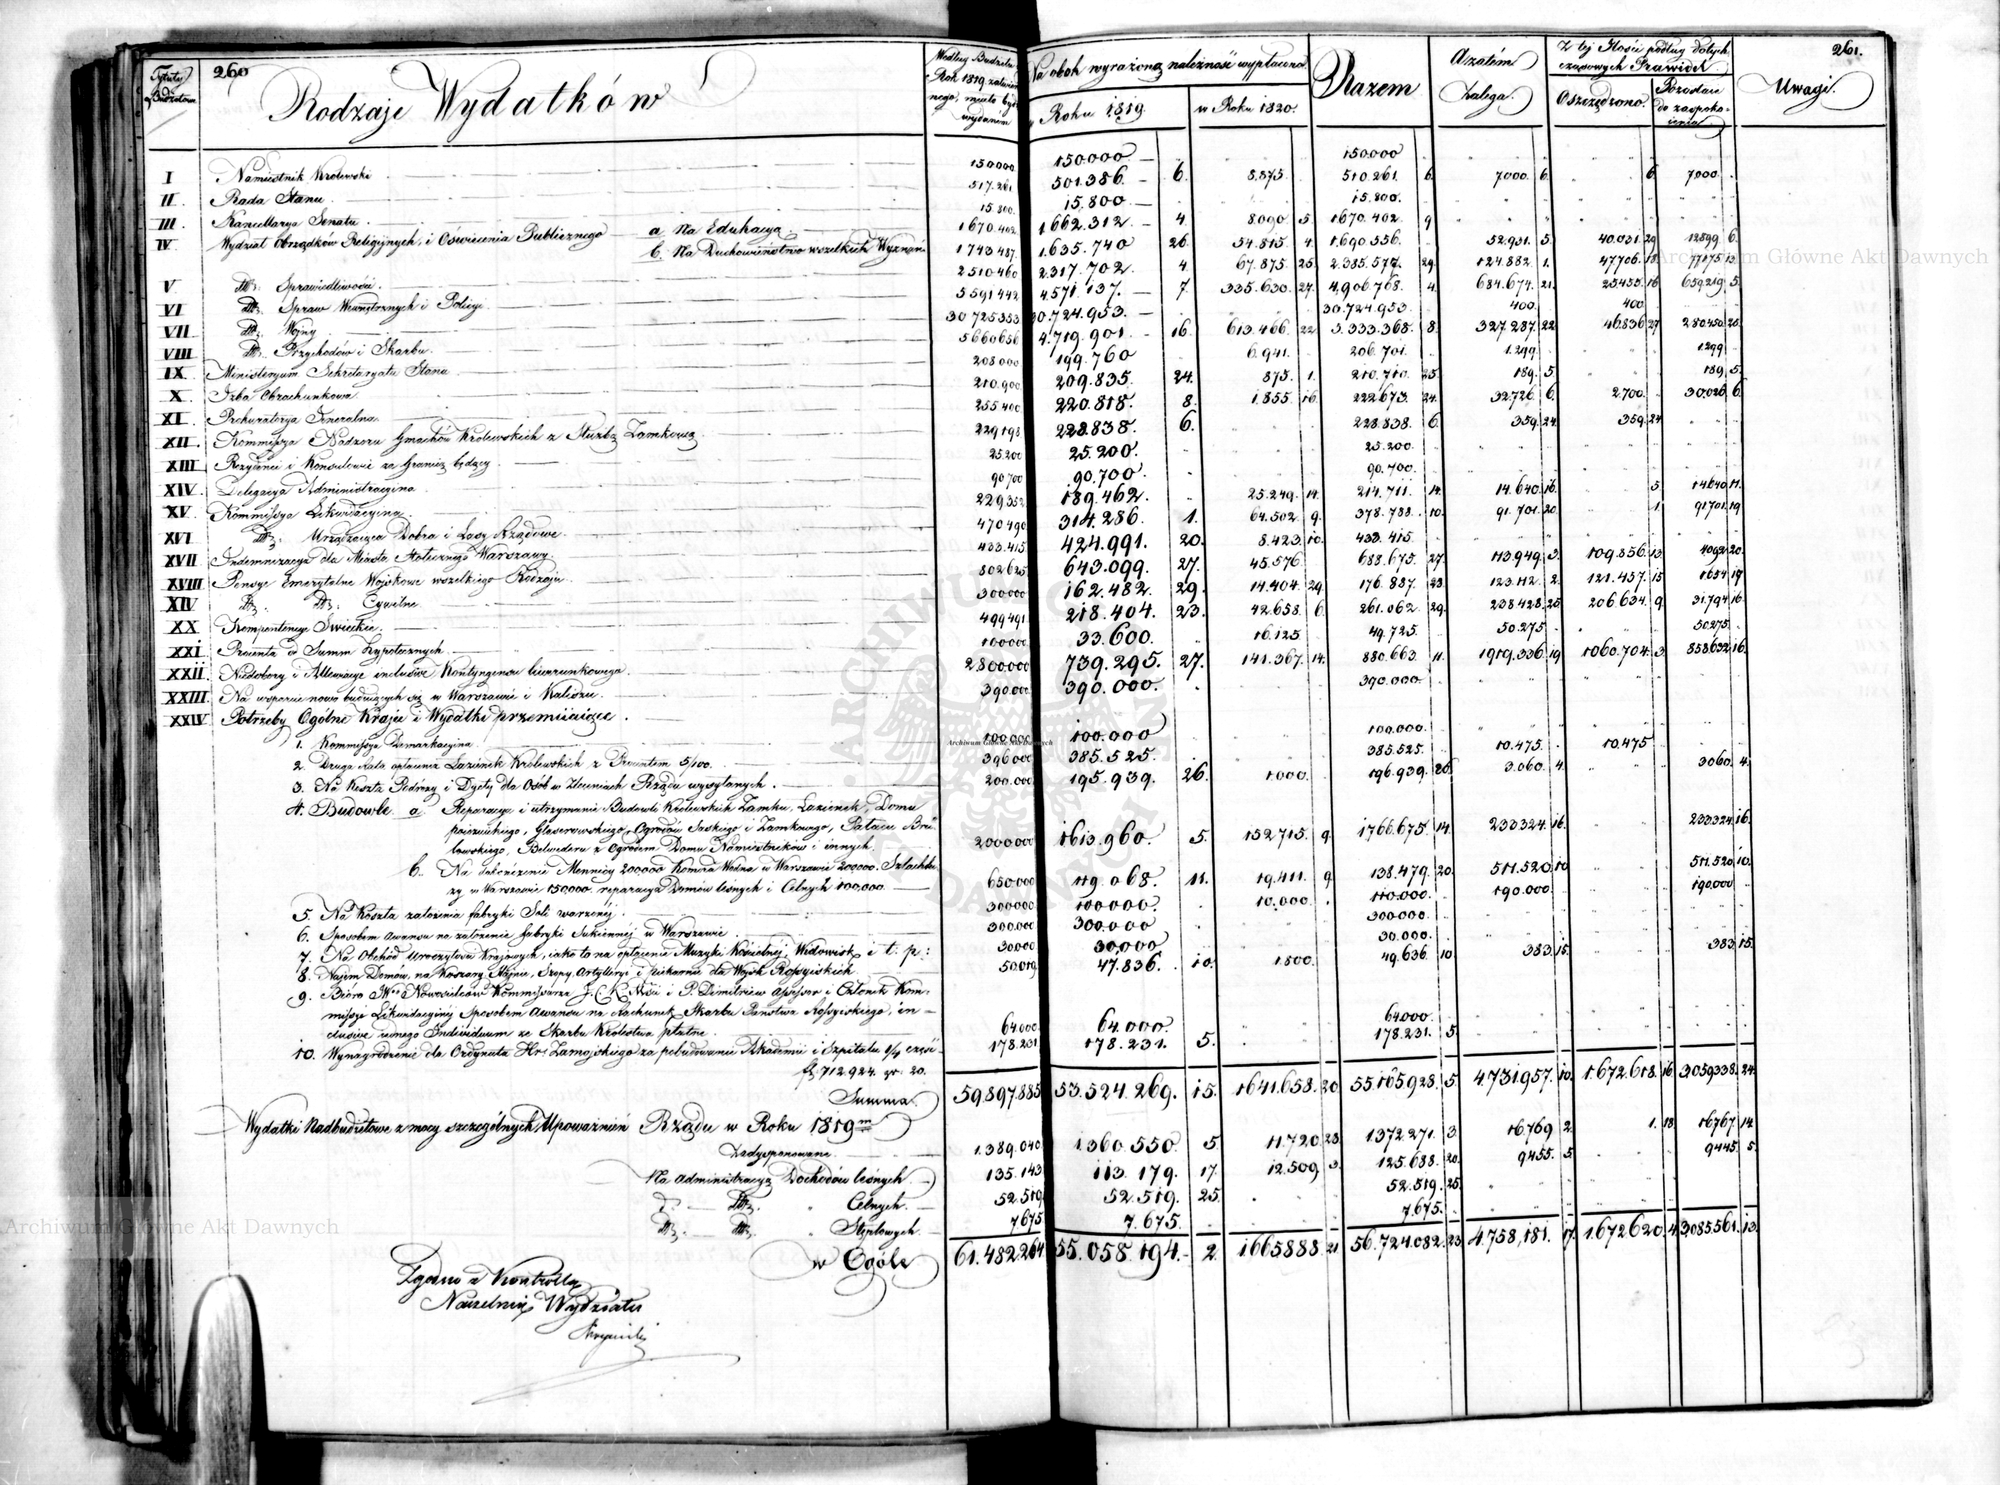 Tytuły Budżetowe
260
Rodzaje Wydatków
Według Budżetu Rok 1819 zatwierdzonego, miało być wydanem
Na obok wyrażoną należność wypłacono
w Roku 1819.
w Roku 1820.
Razem
A zatém zalega.
Z tej Ilości podług dotychczasowych Prawideł.
Oszczędzono.
Pozostaie do zaspokoienia
Uwagi.
261.
I Namiestnik Królewski 150.000 150.000. 150.000
II Rada Stanu 517.261 501.386. 6. 8.875 510.261. 6. 7000. 6. 6. 7000
III Kancellarya Senatu 15.800. 15.800 15.800.
IV Wydział Obrządków Religijnych, i Oświecenia Publicznego a na Edukacyą 1670.402 1.662.312 4 8090 5 1670.402 9
b. Na Duchowieństwo wszelkich Wyznań 1743.487. 1.635.740 26. 54.815. 4. 1.690.556. 52.931. 5. 40.031. 29 12899 6.
V Dtto Sprawiedliwości 2510460 2.317.702 4. 67.875. 25. 2.385.577. 29. 124.882. 1. 47706. 18 77175 13
VI Dtto Spraw Wewnętrznych i Policyi 5591442 4.571.137. 7. 335.630. 27. 4.906.768. 4. 684.674. 21. 25455. 16 659219 5.
VII Dtto Woyny 30725353 30.724.953. 30.724.953. 400. 400
VIII Dtto Przychodów i Skarbu 5660656 4.719.901. 16. 613.466. 22. 5.333.368. 8. 327.287. 22 46836 27 280450 25.
IX Ministeryum Sekretaryatu Stanu 208000 199.760 6.941. 206.701. 1.299. 1299
X Izba Obrachunkowa 210.900 209.835. 24. 875. 1. 210.710. 25. 189. 5 189 5.
XI Prokuratorya Jeneralna 255400 220.818. 8. 1.855 16. 222.673. 24. 32.726. 6. 2.700. 30.026 6.
XII. Kommissya Nadzoru Gmachów Królewskich z Służbą Zamkową 229198 228.838. 6. 228.838. 6. 359. 24. 359. 24
XIII Rezydenci i Konsulowie za Granicą będący 25.200 25.200. 25.200.
XIV Delegacya Administracyina 90700 90.700. 90.700.
XV Kommissya Likwidacyina 229352 189.462. 25.249. 14. 214.711. 14. 14.640. 16. 5 14640 11.
XVI Dtto Urządzaiąca Dobra i Lasy Rządowe 470490 314.286. 1. 64.502. 9. 378.788. 10. 91.701. 20. 1. 91701 19
XVII Indemnizacya dla Miasta Stołecznego Warszawy 433.415 424.991. 20. 8.423. 10. 433.415.
XVIII Pensye Emerytalne Woyskowe wszelkiego Rodzaju 802625 643.099. 27. 45.576. 688.675. 27. 113.949. 3. 109.856. 13 4092 20.
XIV Dtto Dtto Cywilne 300000 162.482. 29. 14.404. 29. 176.887. 28. 123.112. 2. 121.457. 15 1654 17
XX Kompetencye Świeckie. 499491 218.404. 23. 42.658. 6. 261.062. 29. 238.428. 25 206634. 9 31.794 16.
XXI. Procenta od Summ Hypotecznych. 100000 33.600. 16.125. 49.725. 50.275. 50.275
XXII. Niedobory i Allewiacye inclusive Kontyngensu liwerunkowego 2800.000 739.295. 27. 141.367. 14. 880.663. 11. 1919.336 19 1060.704. 3 858632 16.
XXIII. Na wsparcie nowo buduiących się w Warszawie i Kaliszu. 390.000 390.000. 390.000.
XXIV Potrzeby Ogólne Kraju i Wydatki przemiiaiące.
1. Kommissya Demarkacyina 100.000 100.000 100.000.
2. Druga Rata opłacenia Łazienek Królewskich z Procentem 5/100. 396000 385.525. 385.525. 10.475. 10.475
3. Na Koszta Podróży i Dyety dla Osób w Zleceniach Rządu wysyłanych. 200.000 195.939. 26. 1000. 196.939. 26. 3.060. 4. 3060. 4.
4. Budowle a Reparacye i utrzymanie Budowli Królewskich Zamku, Łazienek, Domu
, Ogrodów Saskiego i Zamkowego, Pałacu Brü-
lowskiego, Belwederu z Ogrodem Domu Namiestników i innych. 2000000 1613.960 5. 152.715. 9. 1766.675. 14. 233324. 16. 233324 16.
b. Na dokończenie Mennicy 200,000 Komora Wodna w Warszawie 200000. Szlachtu-
zy w Warszawie 150000. reparacya Domów leśnych i Celnych 100.000. 650.000 119.068. 11. 19.411. 9 138.479. 20. 511.520 10 511.520 10.
5. Na Koszta założenia fabryki Soli warzonéj. 300000 100.000. 10.000. 110.000. 190.000. 190.000
6. Sposobem Awansu na założenie fabryki Sukiennéj w Warszawie. 300.000 300.000 300.000.
7. Na Obchód Uroczystości Kraiowych, iako to na opłacenie Muzyki Kościelnéj, Widowisk i t. p: 30000 30.000 30.000.
8. Naiem Domów, na Koszary, Stajnie, Szopy Artylleryi i piekarnie dla Woysk Rossyiskich 50.019 47.836. 10. 1.800. 49.636. 10 383. 15. 383. 15.
9. Bióro JWo Nowosilcow Kommissarza J. C. K. Mści i P. Dimitriew Assessor i Członek Kom-
missyi Likwidacyiny Sposobem Awansu na Rachunek Skarbu Państwa Rossyiskiego, in-
clusive iednego Individuum ze Skarbu Królestwa płatne. 64000 64.000. 64000.
10. Wynagrodzenie dla Ordynata Hr. Zamoyskiego za pobudowanie Akademii i Szpitalu 1/4 części 178.231 178.231. 5. 178.231. 5.
f. 712.924. gr. 20.
Summa 59.897.885 53.524.269. 15. 1641.658. 20 55.165.928. 5. 4.731.957. 10. 1.672.618. 16 3.059338. 24.
Wydatki Nadbudżetowe z mocy szczególnych Upoważnień Rządu w Roku 1819m
Zadysponowane 1.389.040 1.360.550. 5 11.720. 28 1.372.271. 3. 16.769 2. 1. 18 16767. 14
Na Administracyą Dochodów leśnych. 135.143 113.179. 17. 12.509. 3. 125.688. 20. 9455. 5. 9445. 5.
Dtto Celnych. 52.519 52.519. 25. 52.519. 25.
Dtto Dtto Stęplowych. 7675 7.675. 7.675.
w Ogóle 61.482264 55.058.194. 2. 1665888. 21 56.724.082. 23 4.758,181. 17. 1.672620. 4 3,085.561. 13.
Zgodno z Kontrollą
Naczelnik Wydziału
Archiwum Główne Akt Dawnych
Archiwum Główne Akt Dawnych
Archiwum Główne Akt Dawnych
ARCHIWUM GŁÓWNE AKT DAWNYCH